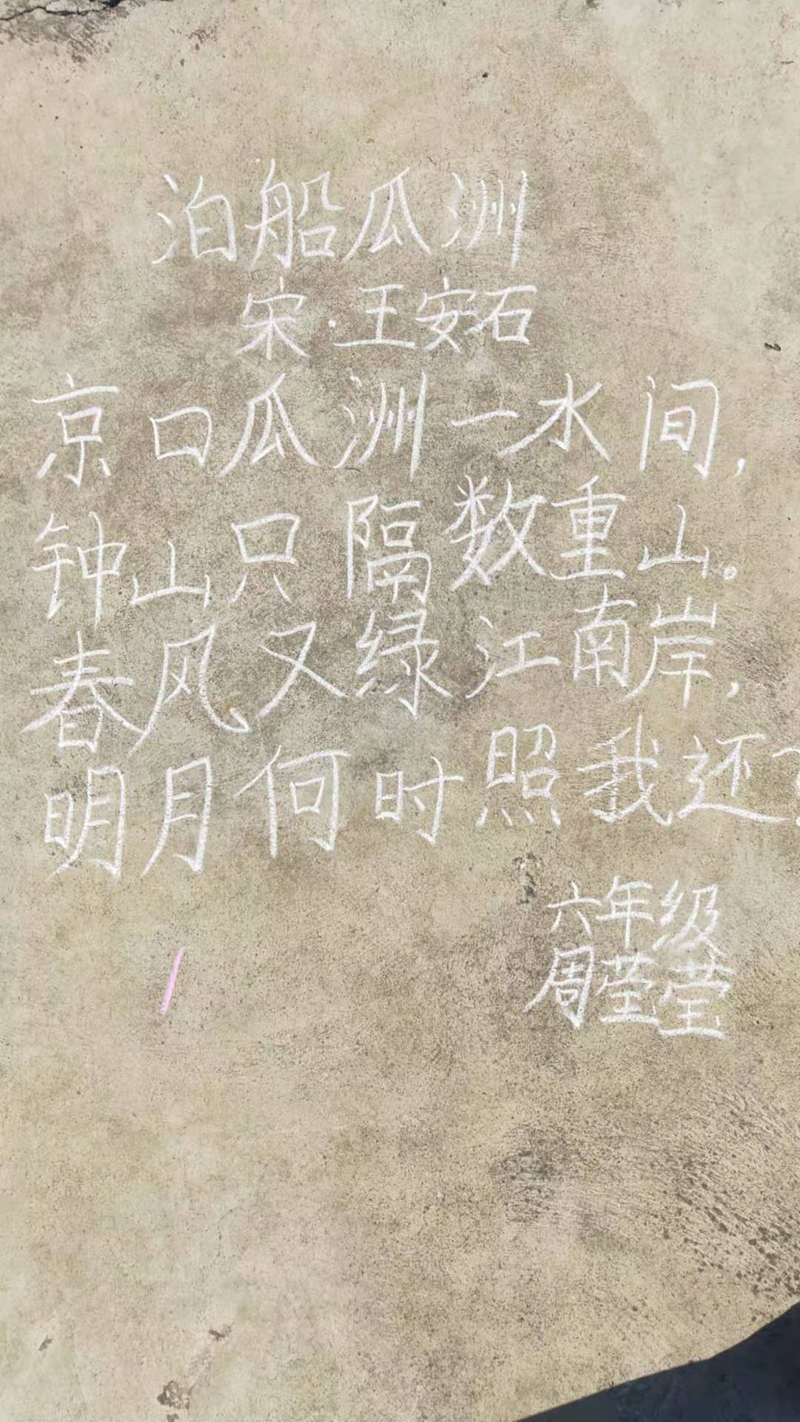 泊船瓜洲
宋·王安石
京口瓜洲一水间,
钟山只隔数重山。
春风又绿江南岸,
明月何时照我还?
六年级
周莹莹